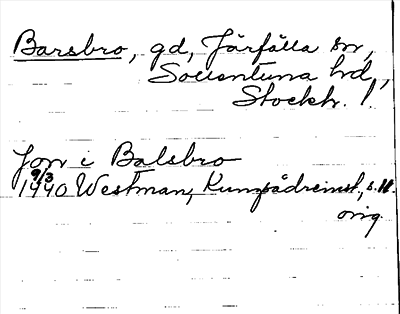 Barsbro, gd, Järfälla sn,
Sollentuna hd,
Stockh. l.
Jon i Balsbro
9/3
1440 Westman, Kungsådreinst, s. 11.
orig.